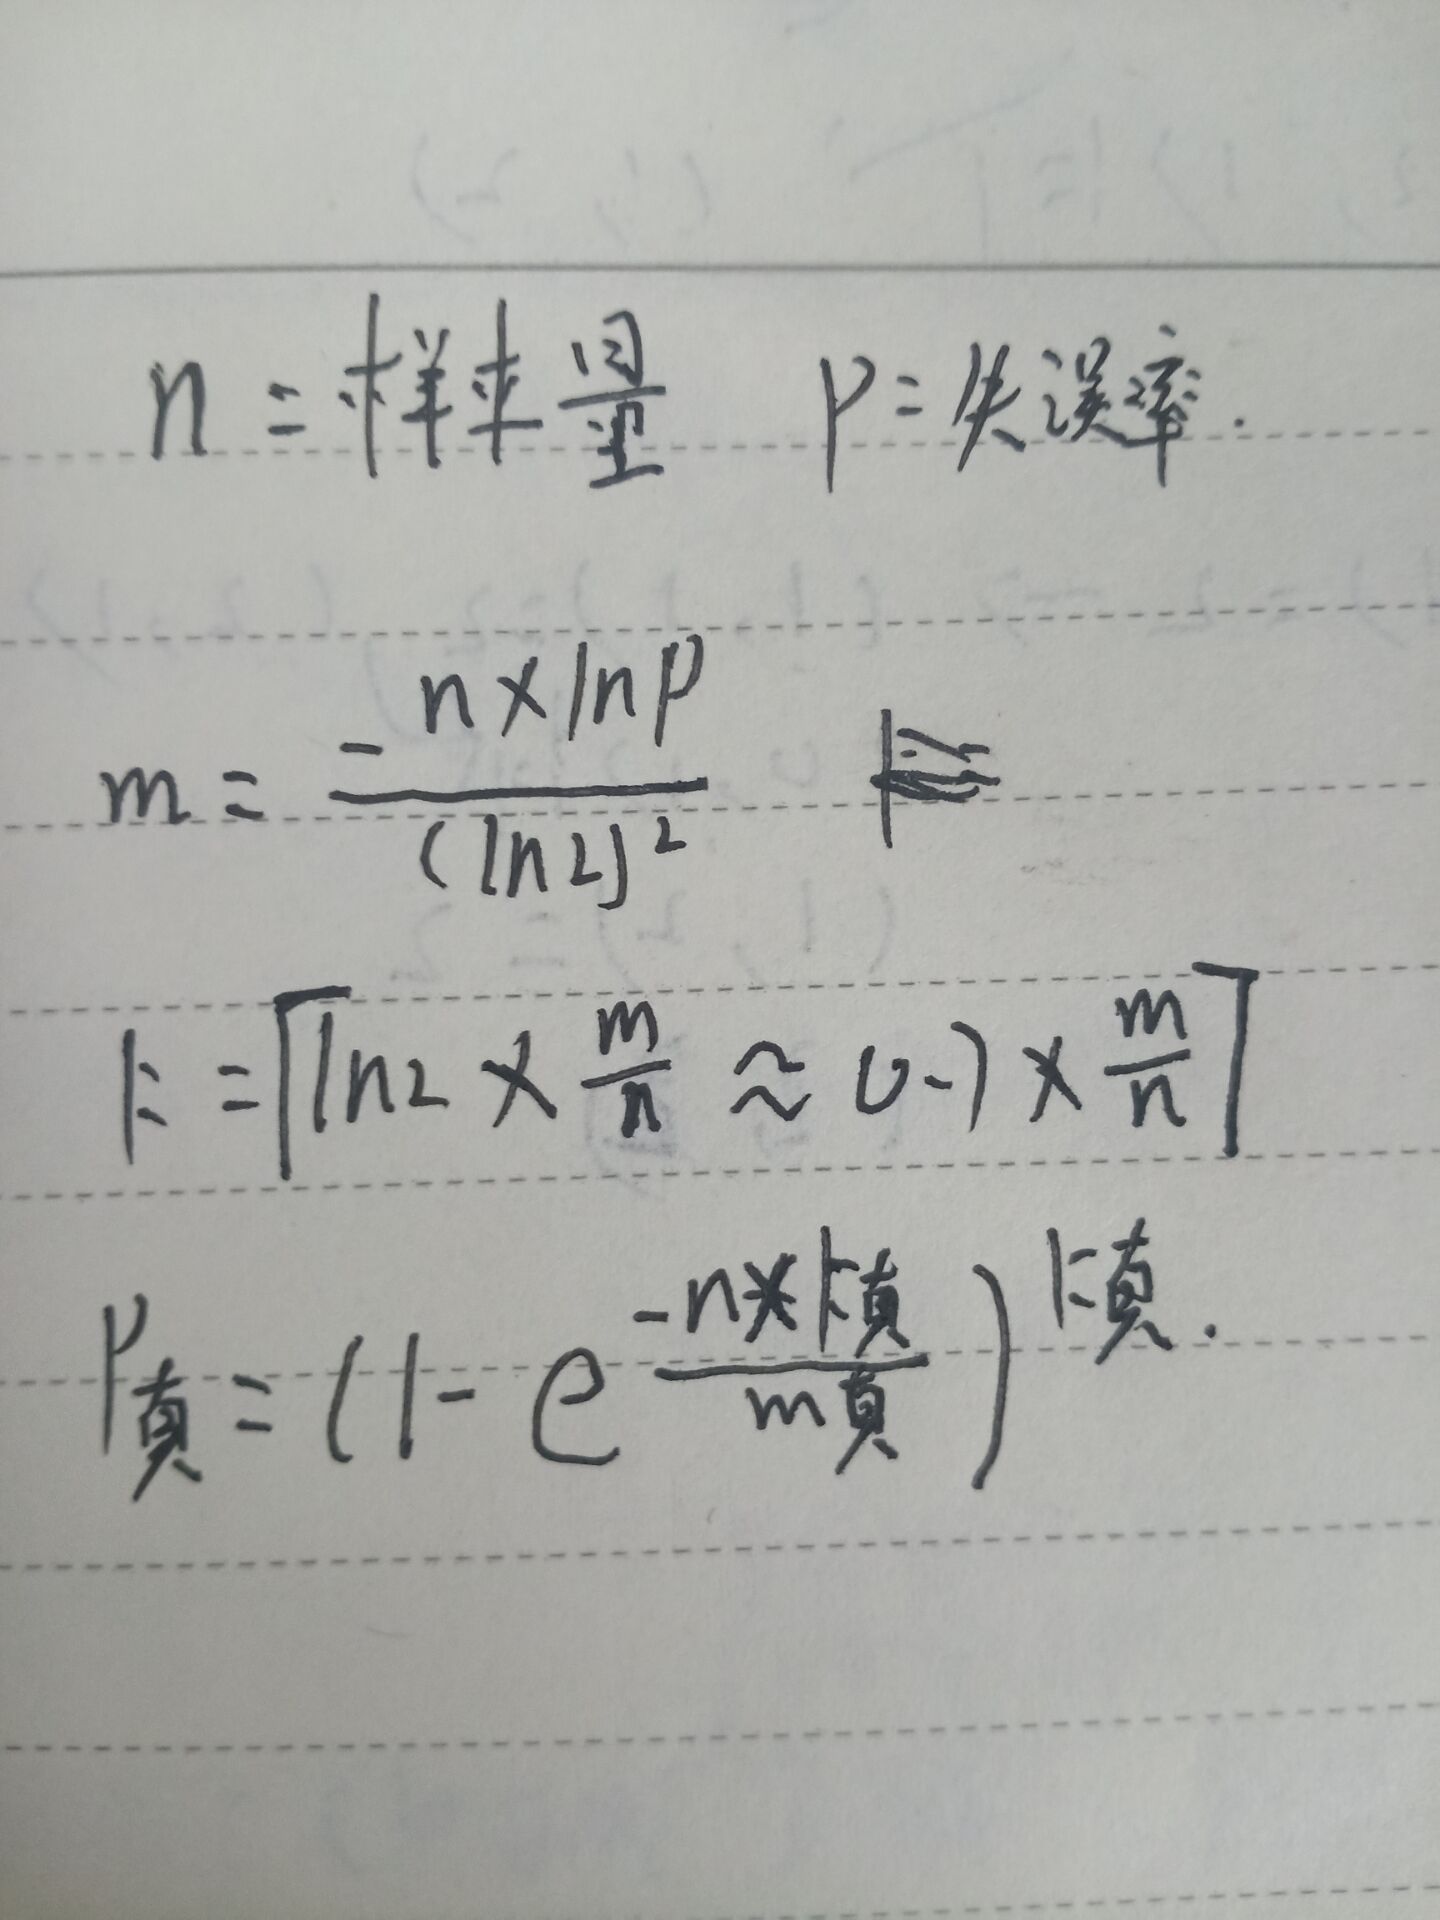 n = 样本量 P = 失误率.
m = - n × lnP / (ln2)²
k = ⌈ln2 × m/n ≈ 0.7 × m/n⌉
P真 = (1 - e^(-n×k真 / m真))^k真.